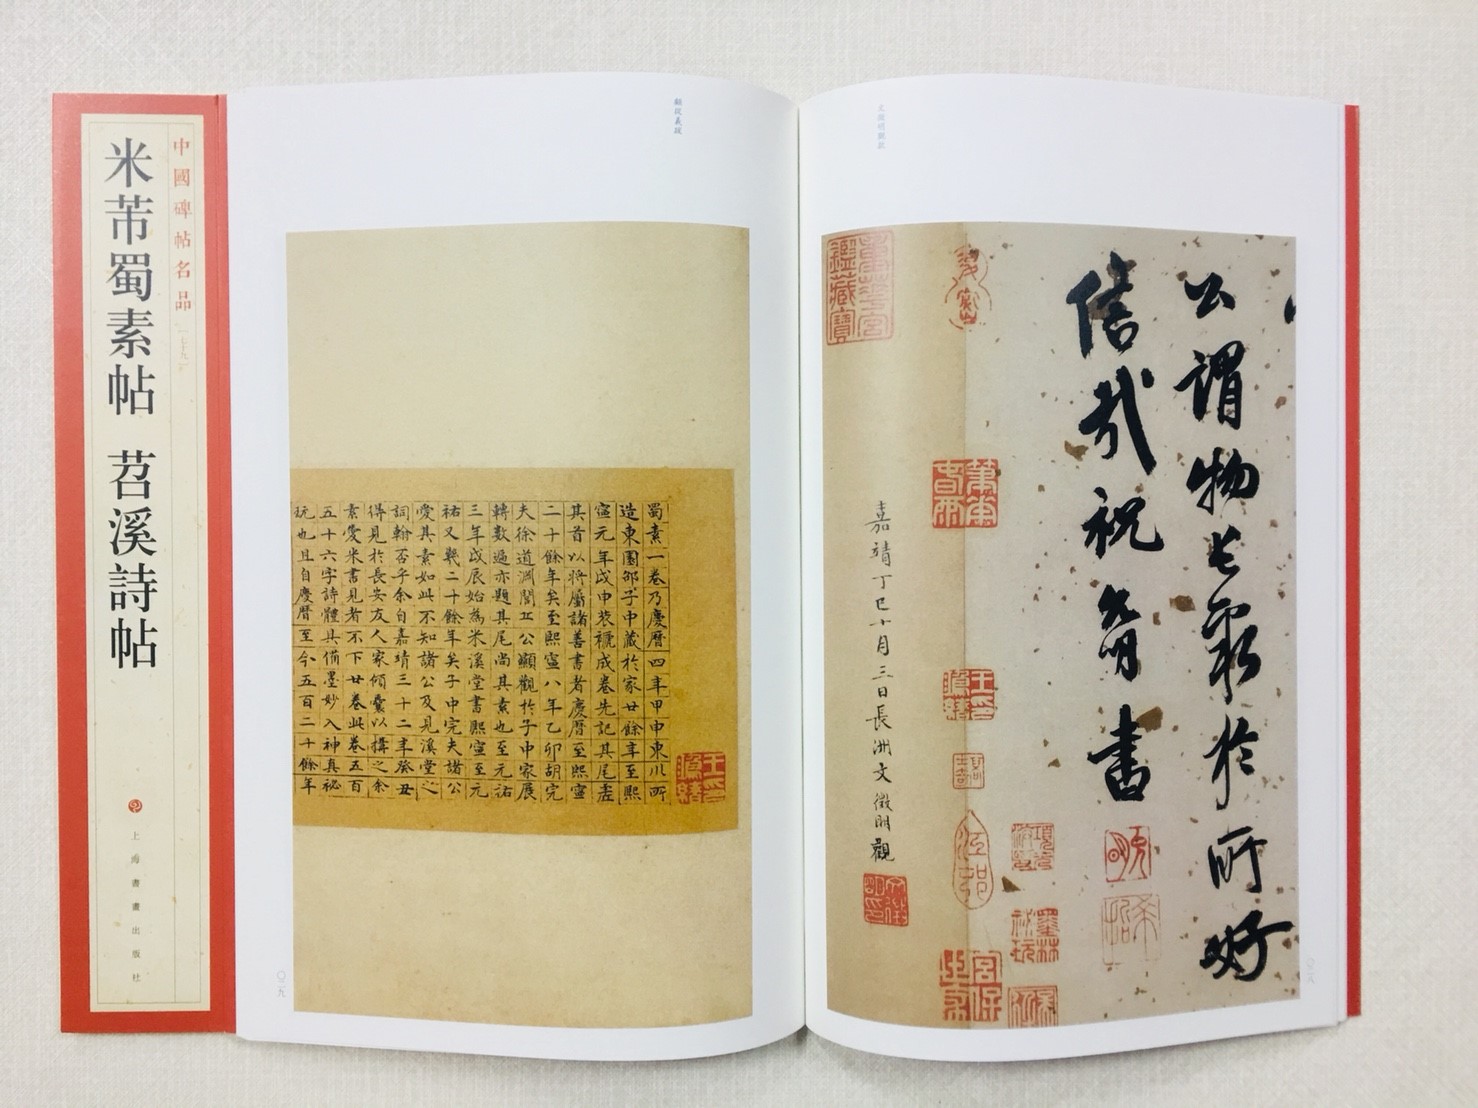 中國碑帖名品
米芾蜀素帖 苕溪詩帖
上海書畫出版社
公謂物之聚於所好
信哉祝允明書
嘉靖丁巳十月三日長洲文徵明觀
顧從義跋
蜀素一卷乃慶曆四年甲申東川所
造東園邵子中藏於家廿餘年至熙
寧元年戊申裝褫成卷先記其尾虛
其首以將屬諸善書者慶曆至熙寧
二十餘年矣至熙寧八年乙卯胡完
夫徐道淵閭丘公顯觀於子中家展
轉數過亦題其尾尚其素也至元祐
三年戊辰始為米溪堂書熙寧至元
祐又幾二十餘年矣子中完夫諸公
愛其素如此不知諸公及見溪堂之
詞翰否乎余自嘉靖三十二年癸丑
得見於長安友人家傾囊以購之余
素愛米書見者不下廿卷此卷五百
五十六字詩體具備墨妙入神真秘
玩也且自慶曆至今五百二十餘年